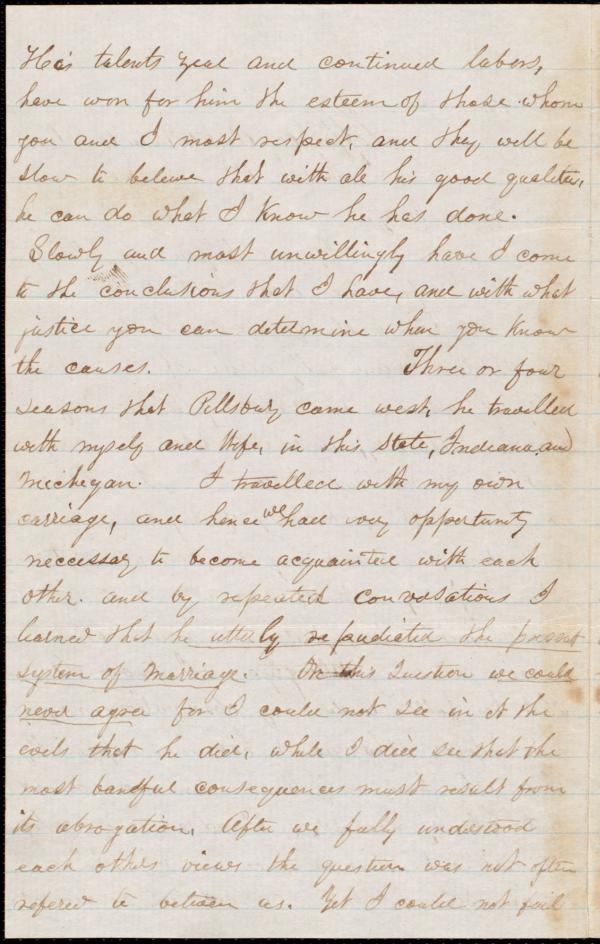 His talents zeal and continued labors,
have won for him the esteem of those whom
you and I most respect, and they will be
slow to beleve that with all his good qualities,
he can do what I know he has done.
Slowly and most unwillingly have I come
to the conclusions that I have, and with what
justice you can determine when you know
the causes. Three or four
seasons that Pillsbury came west, he travelled
with myself and Wife, in this State, Indiana, and
Michegan. I travelled with my own
carriage, and hence we had evry opportunity
neccessary to become acquainted with each
other. and by repeated convosations I
learned that he utterly repudiated the present
system of Marriage. On this Question we could
never agree for I could not see in it the
evils that he did, while I did see that the
most baneful consequences must result from
its abrogation. After we fully understood
each others views the question was not often
refered to between us. Yet I could not feel